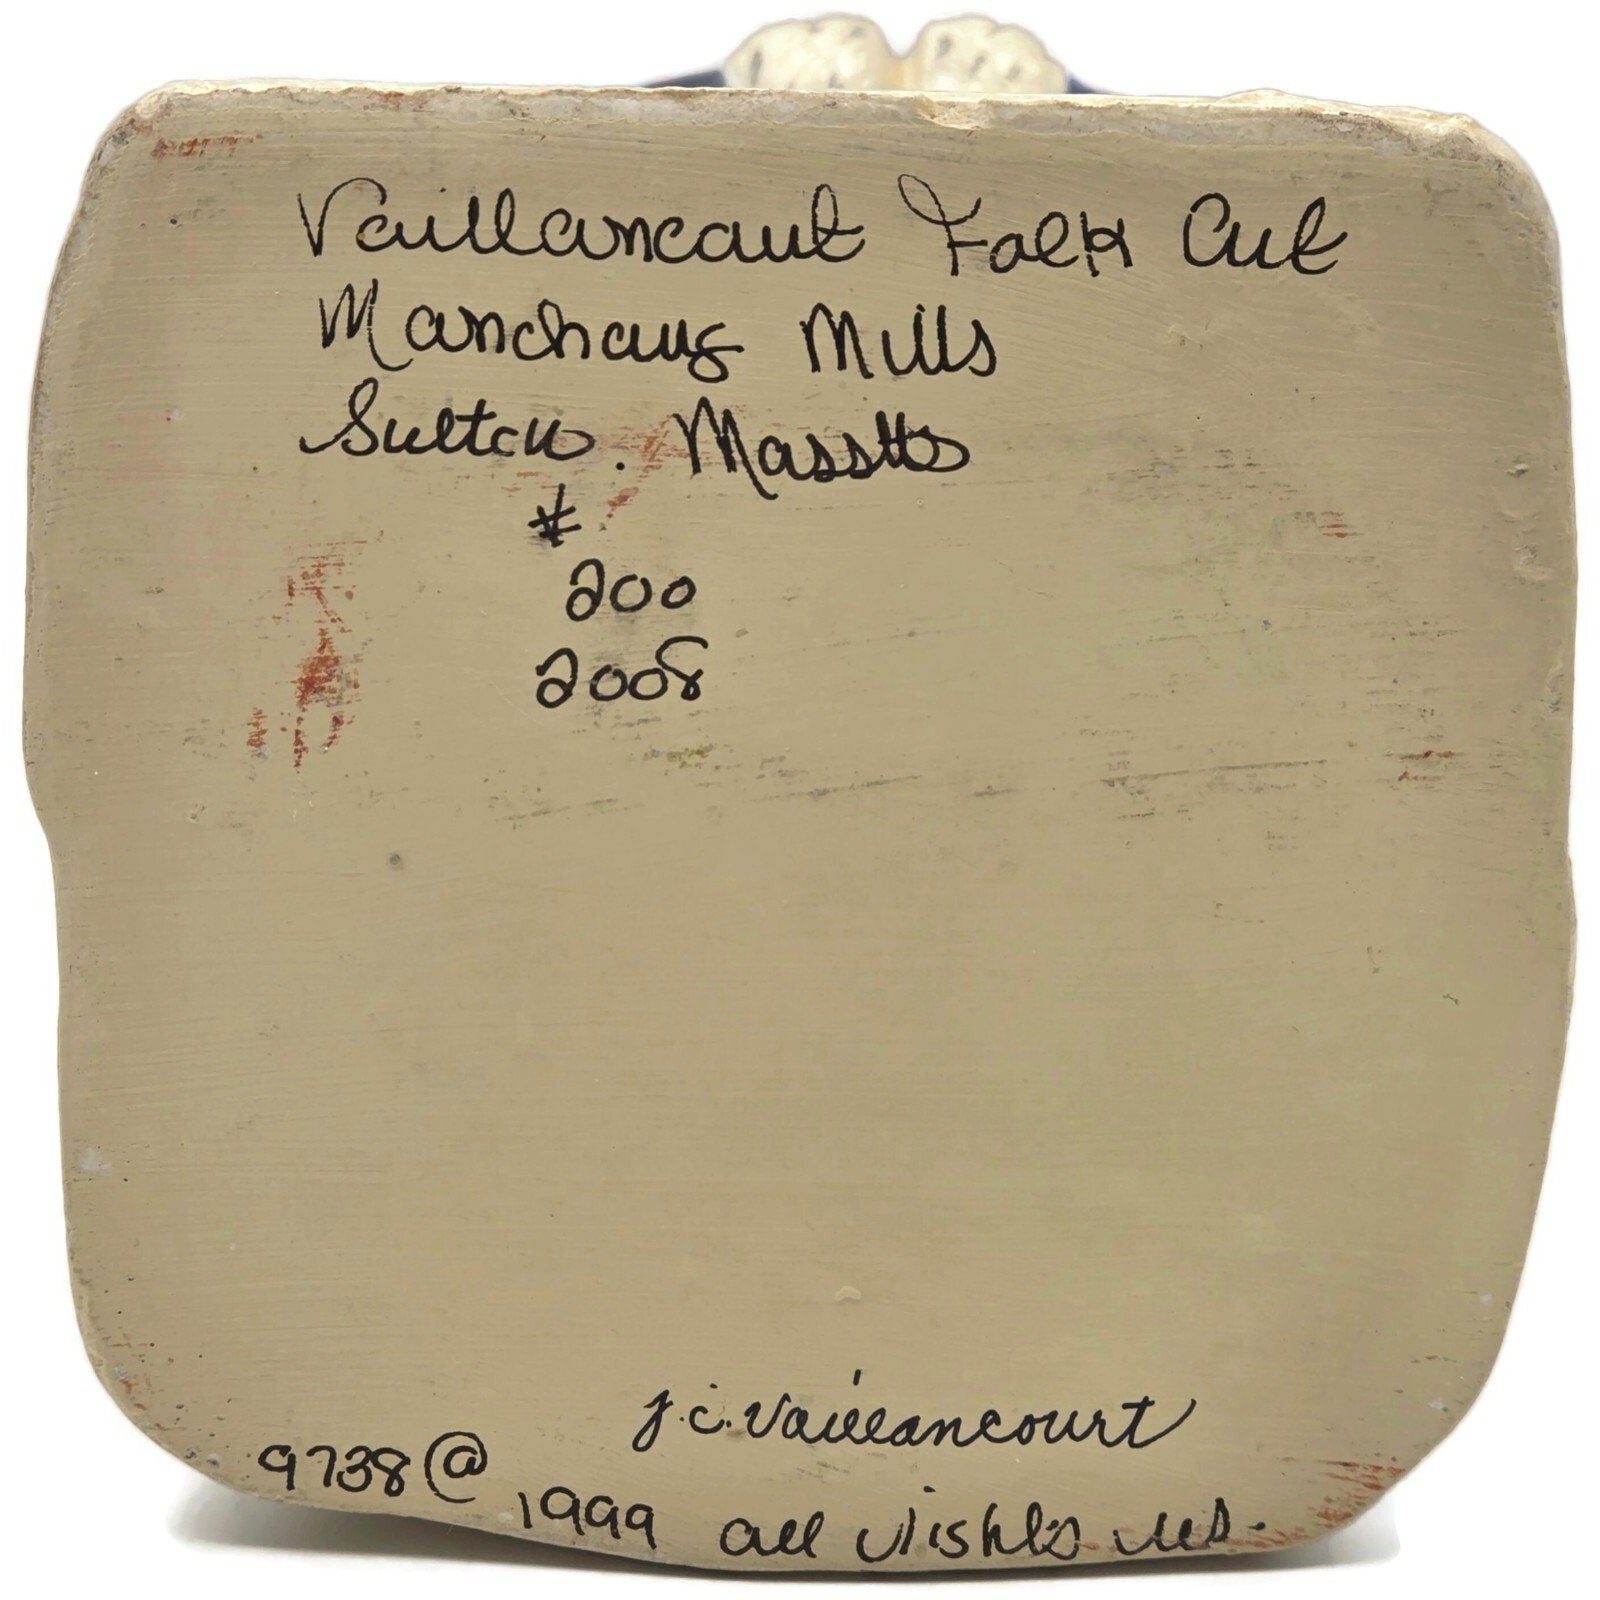 Vaillancourt Folk Art
Manchaug Mills
Sutton. Masstts
#
200
2008
J.C. Vaillancourt
9738 ©
1999 all rights res.